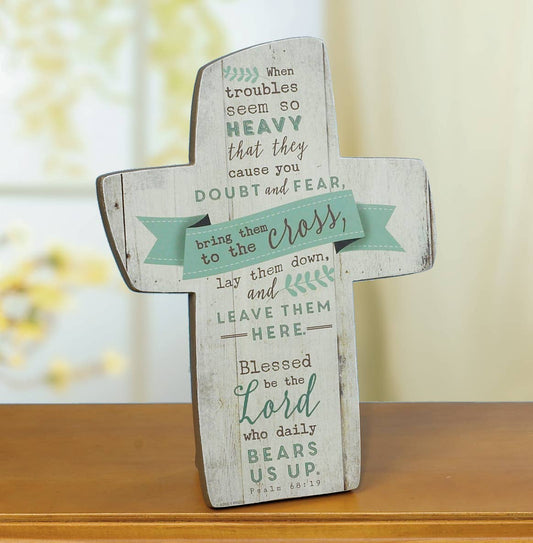 When
troubles
seem so
HEAVY
that they
cause you
DOUBT and FEAR,
bring them
to the Cross,
lay them down,
and
LEAVE THEM
HERE.
Blessed
be the
Lord
who daily
BEARS
US UP.
Psalm 68:19